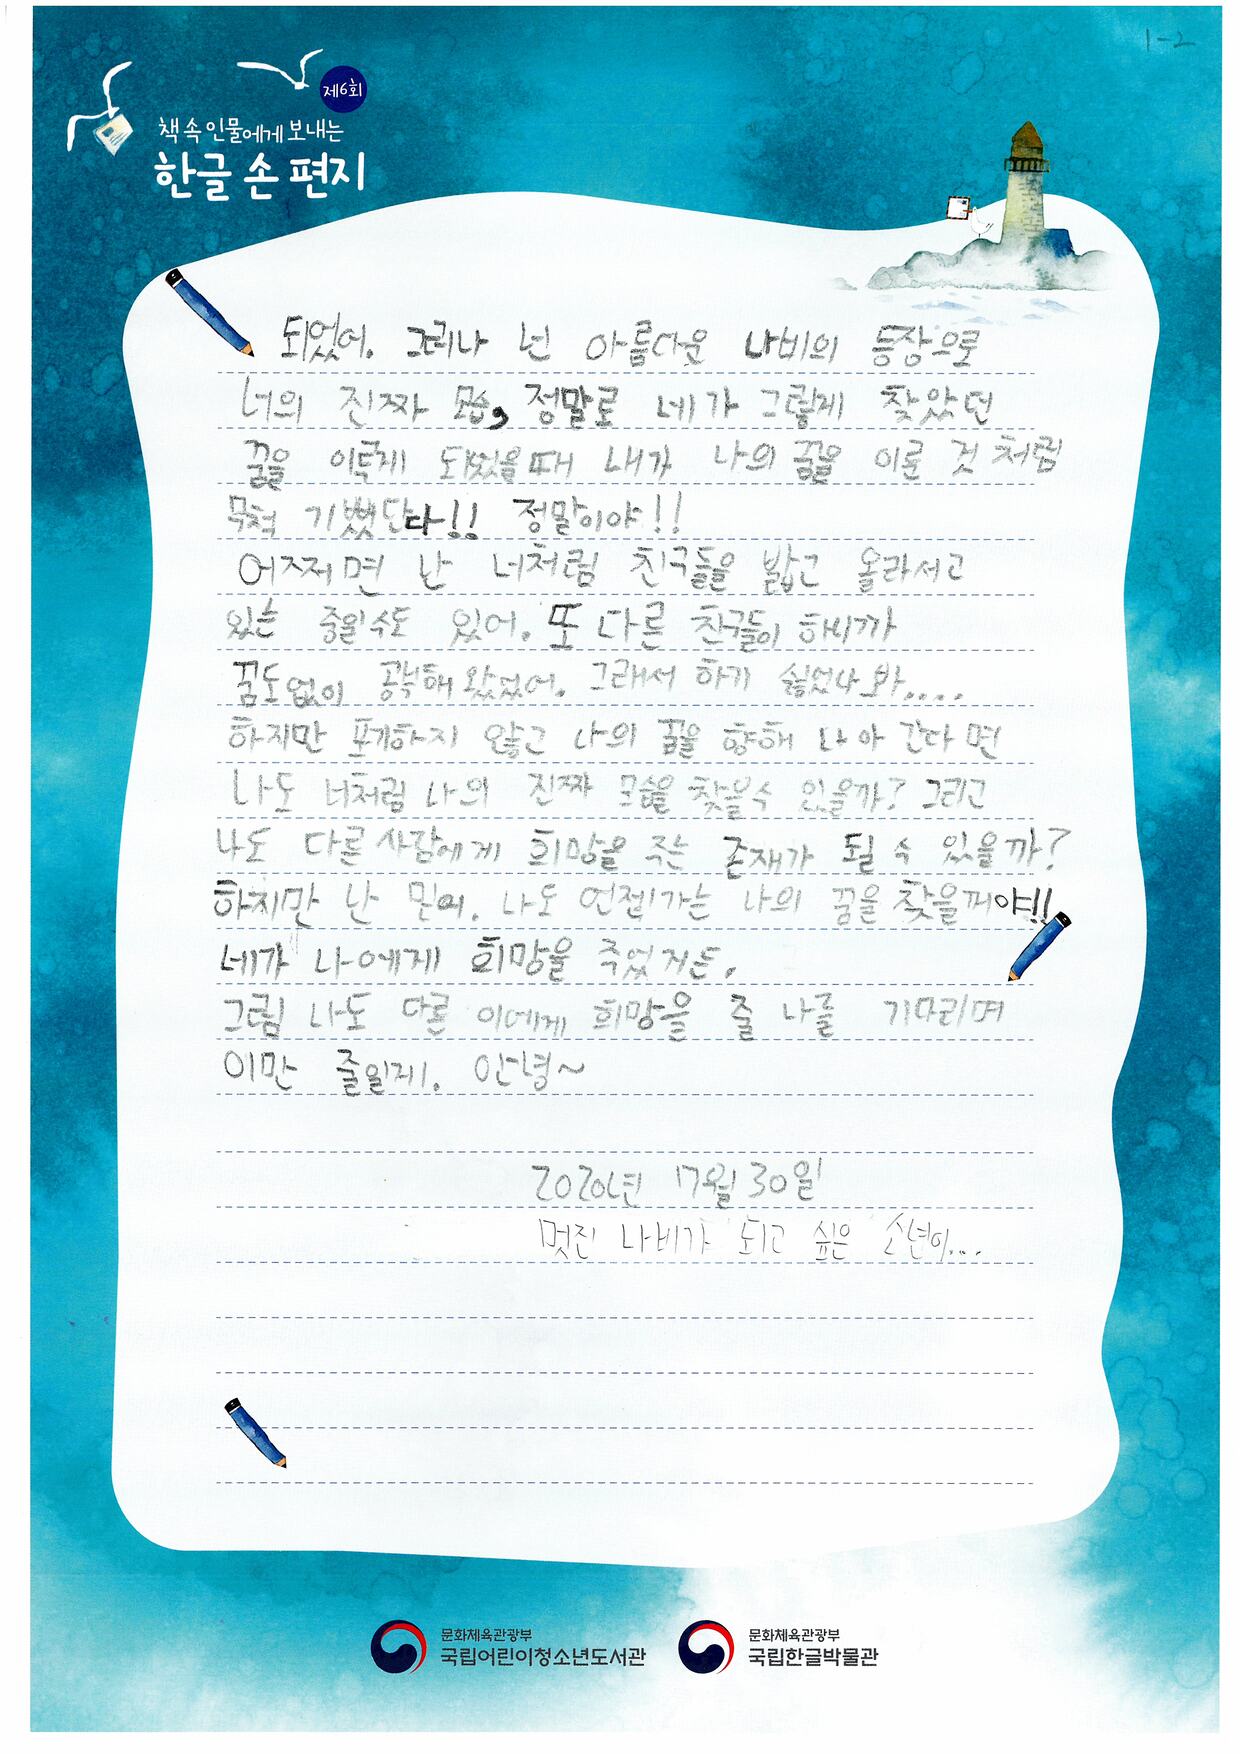 1-2
제6회
책 속 인물에게 보내는
한글 손 편지
되었어. 그러나 넌 아름다운 나비의 등장으로
너의 진짜 모습, 정말로 네가 그렇게 찾았던
꿈을 이루게 되었을때 내가 나의 꿈을 이룬 것 처럼
무척 기뻤단다!! 정말이야!!
어쩌면 난 너처럼 친구들을 밟고 올라서고
있는 중일수도 있어. 또 다른 친구들이 하니까
꿈도없이 공부해 왔었어. 그래서 하기 싫었나 봐....
하지만 포기하지 않고 나의 꿈을 향해 나아 간다면
나도 너처럼 나의 진짜 모습을 찾을수 있을까? 그리고
나도 다른 사람에게 희망을 주는 존재가 될 수 있을까?
하지만 난 믿어. 나도 언젠가는 나의 꿈을 찾을꺼야!!
네가 나에게 희망을 주었거든.
그럼 나도 다른 이에게 희망을 줄 나를 기다리며
이만 줄일게. 안녕~
2020년 7월 30일
멋진 나비가 되고 싶은 소년이...
문화체육관광부
국립어린이청소년도서관
문화체육관광부
국립한글박물관